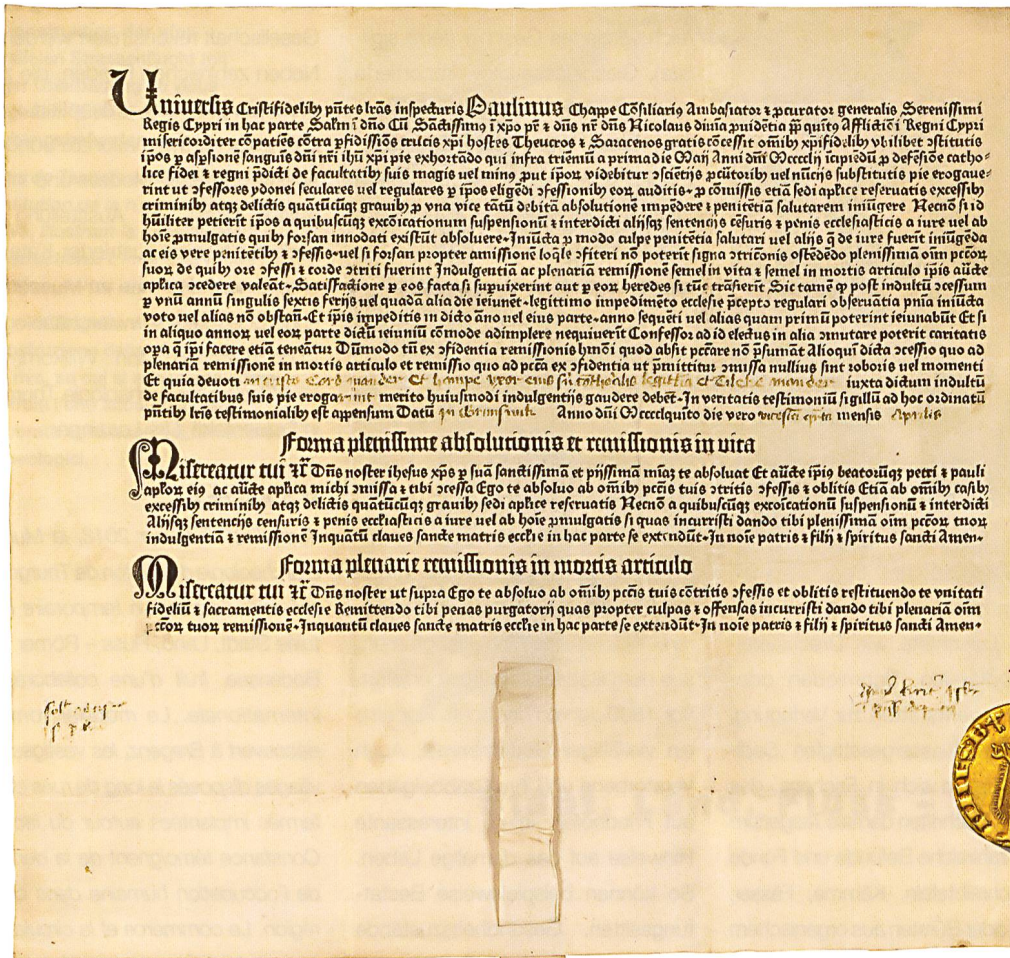 Uniuersis Cristifidelibꝫ pn̄tes lrās inspecturis Paulinus Chappe Cōsiliariꝯ Ambasiator ⁊ ꝓcurator generalis Serenissimi
Regis Cypri in hac parte Saltm̄ ī dn̄o Cū Sāctissimꝯ ī xpō pr̄ ⁊ dn̄s nr̄ dn̄s Nicolaus diuīa ꝓuidētia pp̄ quītꝯ Afflictiōī Regni Cypri
misericorditer cōpatiēs cōtra ꝑfidissimos crucis xpī hostes Theucros ⁊ Saracenos gratis cōcessit om̄ibꝫ xpīfidelibꝫ vbilibet ↄstitutis
ip̄os ꝑ asꝑsionē sanguīs dn̄i nr̄i ihū xpī pie exhortādo qui infra trienniū a prima die Maij Anni dn̄i Mcccclij īcipiēdū ꝓ defēsiōe catho⸗
lice fidei ⁊ regni p̄dicti de facultatibꝫ suis magis uel minꝯ ꝓut ip̄oꝝ videbitur ↄsciētijs ꝓcūtoribꝫ uel nūcijs substitutis pie erogaue⸗
rint ut ↄfessores ydonei seculares uel regulares ꝑ ip̄os eligēdi ↄfessionibꝫ eoꝝ auditis· ꝓ cōmissis etiā sedi aplīce reseruatis excessibꝫ
criminibꝫ atqꝫ delictis quātūcūqꝫ grauibꝫ ꝓ vna vice tātū debitā absolutionē impēdere ⁊ penitētiā salutarem iniūgere Necnō si id
hūiliter petierīt ip̄os a quibuscūqꝫ excōicationum suspensionū ⁊ interdicti alijsqꝫ sentencijs cēsuris ⁊ penis ecclesiasticis a iure uel ab
hoīe ꝓmulgatis quibꝫ forsan innodati existūt absoluere· Iniūcta ꝓ modo culpe penitētia salutari uel alijs q̄ de iure fuerīt iniūgēda
ac eis vere penitētibꝫ ⁊ ↄfessis· uel si forsan propter amissionē loq̄le ↄfiteri nō poterīt signa ↄtritionis ostēdēdo plenissimā oīm pcc̄oꝝ
suoꝝ de quibꝫ ore ↄfessi ⁊ corde ↄtriti fuerint Indulgentiā ac plenariā remissionē semel in vita ⁊ semel in mortis articulo ip̄is aūcte
aplīca ↄcedere valeāt· Satisfactione ꝑ eos facta si supuixerīt aut ꝑ eoꝝ heredes si tūc trāsierīt Sic tamē ꝙ post indultū ↄcessum
ꝑ vnū annū singulis sextis ferijs uel quadā alia die ieiunēt· legittimo impedimēto ecclesie p̄cepto regulari obseruātia pn̄ia iniūcta
voto uel alias nō obstan̄· Et ip̄is impeditis in dicto āno uel eius parte· anno sequēti uel alias quam primū poterint ieiunabūt Et si
in aliquo annoꝝ uel eoꝝ parte dictū ieiuniū cōmode adimplere nequiuerīt Confessor ad id electus in alia ↄmutare poterit caritatis
oꝑa q̄ ip̄i facere etiā teneātur Dūmodo tn̄ ex ↄfidentia remissionis hm̄oī quod absit pcc̄are nō p̄sumāt Alioqui dicta ↄcessio quo ad
plenariā remissionē in mortis articulo et remissio quo ad pcc̄a ex ↄfidentia ut p̄mittitur ↄmissa nullius sint roboris uel momenti
Et quia deuoti in cristo Cord mander Et hampe vxor eius iuxta dictum indultū
de facultatibus suis pie erogarunt merito huiusmodi indulgentijs gaudere debēt· In veritatis testimoniū sigillū ad hoc ordinatū
pn̄tibꝫ lrīs testimonialibꝫ est appensum Datū in Brunswik Anno dn̄i Mcccclquīto die vero mensis Aprilis
Forma plenissime absolutionis et remissionis in vita
Misereatur tui ⁊c̄ Dn̄s noster ihesus xp̄s ꝑ suā sanctissimā et pijssimā miāꝫ te absoluat Et aūcte ip̄iꝯ beatorūqꝫ petri ⁊ pauli
aplōꝝ eiꝯ ac aūcte aplīca michi ↄmissa ⁊ tibi ↄcessa Ego te absoluo ab om̄ibꝫ pcc̄is tuis ↄtritis ↄfessis ⁊ oblitis Etiā ab om̄ibꝫ casibꝫ
excessibꝫ criminibꝫ atqꝫ delictis quātūcūqꝫ grauibꝫ sedi aplīce reseruatis Necnō a quibuscūqꝫ excōicationū suspensionū ⁊ interdicti
Alijsqꝫ sentencijs censuris ⁊ penis ecclīasticis a iure uel ab hoīe ꝓmulgatis si quas incurristi dando tibi plenissimā oīm pcc̄oꝝ tuoꝝ
indulgentiā ⁊ remissionē Inquātū claues sancte matris ecclīe in hac parte se extendūt· In noīe patris ⁊ filij ⁊ spiritus sancti Amen·
Forma plenarie remissionis in mortis articulo
Misereatur tui ⁊c̄ Dn̄s noster ut supra Ego te absoluo ab om̄ibꝫ pcc̄is tuis cōtritis ↄfessis et oblitis restituendo te vnitati
fideliū ⁊ sacramentis ecclesie Remittendo tibi penas purgatorij quas propter culpas ⁊ offensas incurristi dando tibi plenariā oīm
pcc̄oꝝ tuoꝝ remissionē· Inquantū claues sancte matris ecclīe in hac parte se extendūt· In noīe patris ⁊ filij ⁊ spiritus sancti Amen·